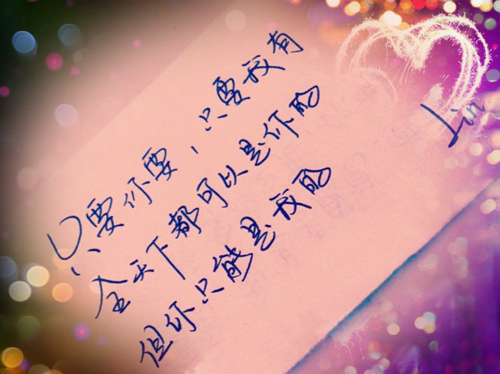 只要你要，只要我有
全天下都可以是你的
但你只能是我的
Lin